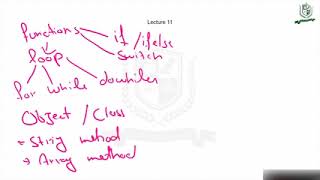 Lecture 11
functions
if / ifelse
switch
loop
for while dowhile
Object / Class
→ String method
→ Array method